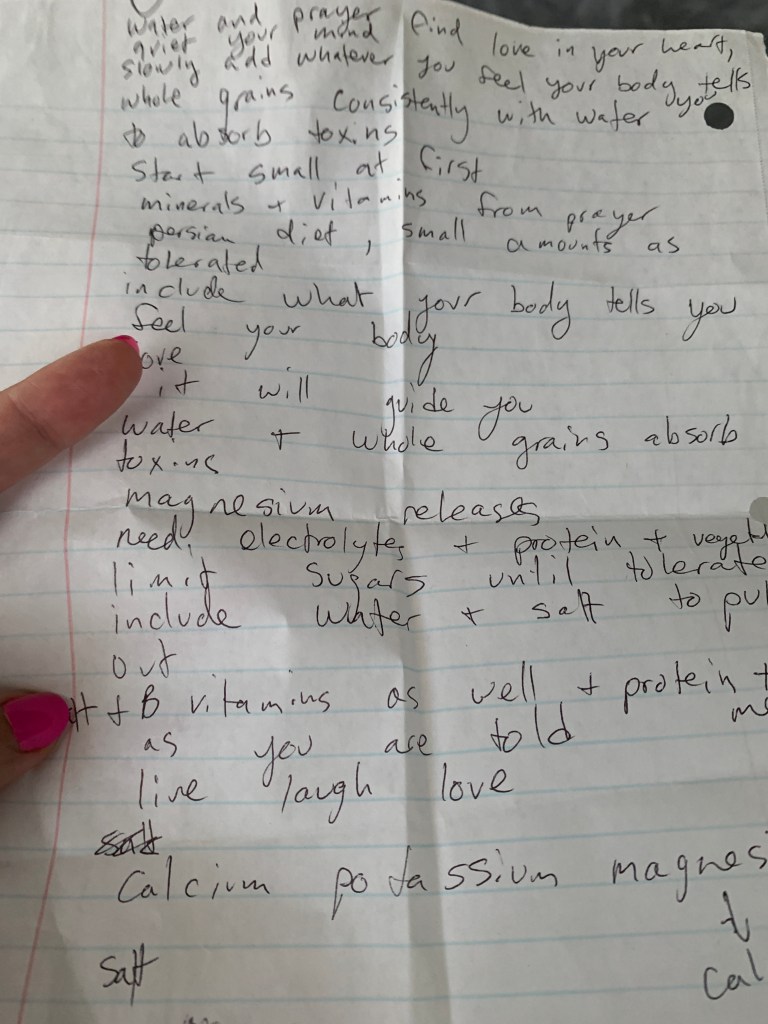 water and prayer find love in your heart,
quiet your mind
slowly add whatever you feel your body tells you
whole grains consistently with water
to absorb toxins
start small at first
minerals + vitamins from prayer
persian diet, small amounts as
tolerated
include what your body tells you
feel your body
ove
it will guide you
water + whole grains absorb
toxins
magnesium releases
need electrolytes + protein + veget
limit sugars until tolerate
include water + salt to pul
out
+ B vitamins as well + protein +
as you are told
live laugh love
salt
Calcium potassium magnes
salt
cal